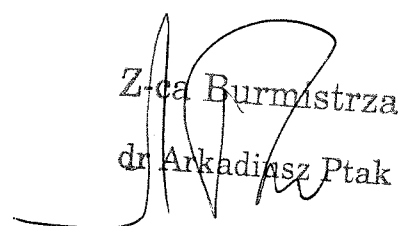 Z-ca Burmistrza
dr Arkadiusz Ptak